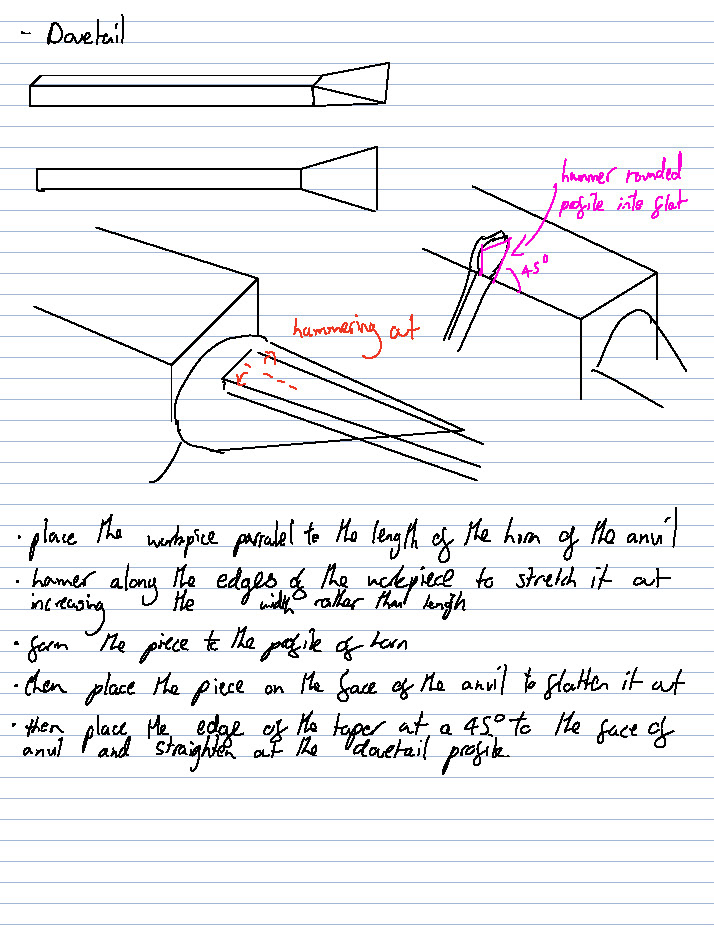 - Dovetail
hammer rounded
profile into flat
45°
hammering out
· place the workpice parralel to the length of the horn of the anvil
· hammer along the edges of the workpiece to stretch it out
increasing the width rather than length
· form the piece to the profile of horn
· then place the piece on the face of the anvil to flatten it out
· then place the edge of the taper at a 45° to the face of
anvil and straighten out the dovetail profile.